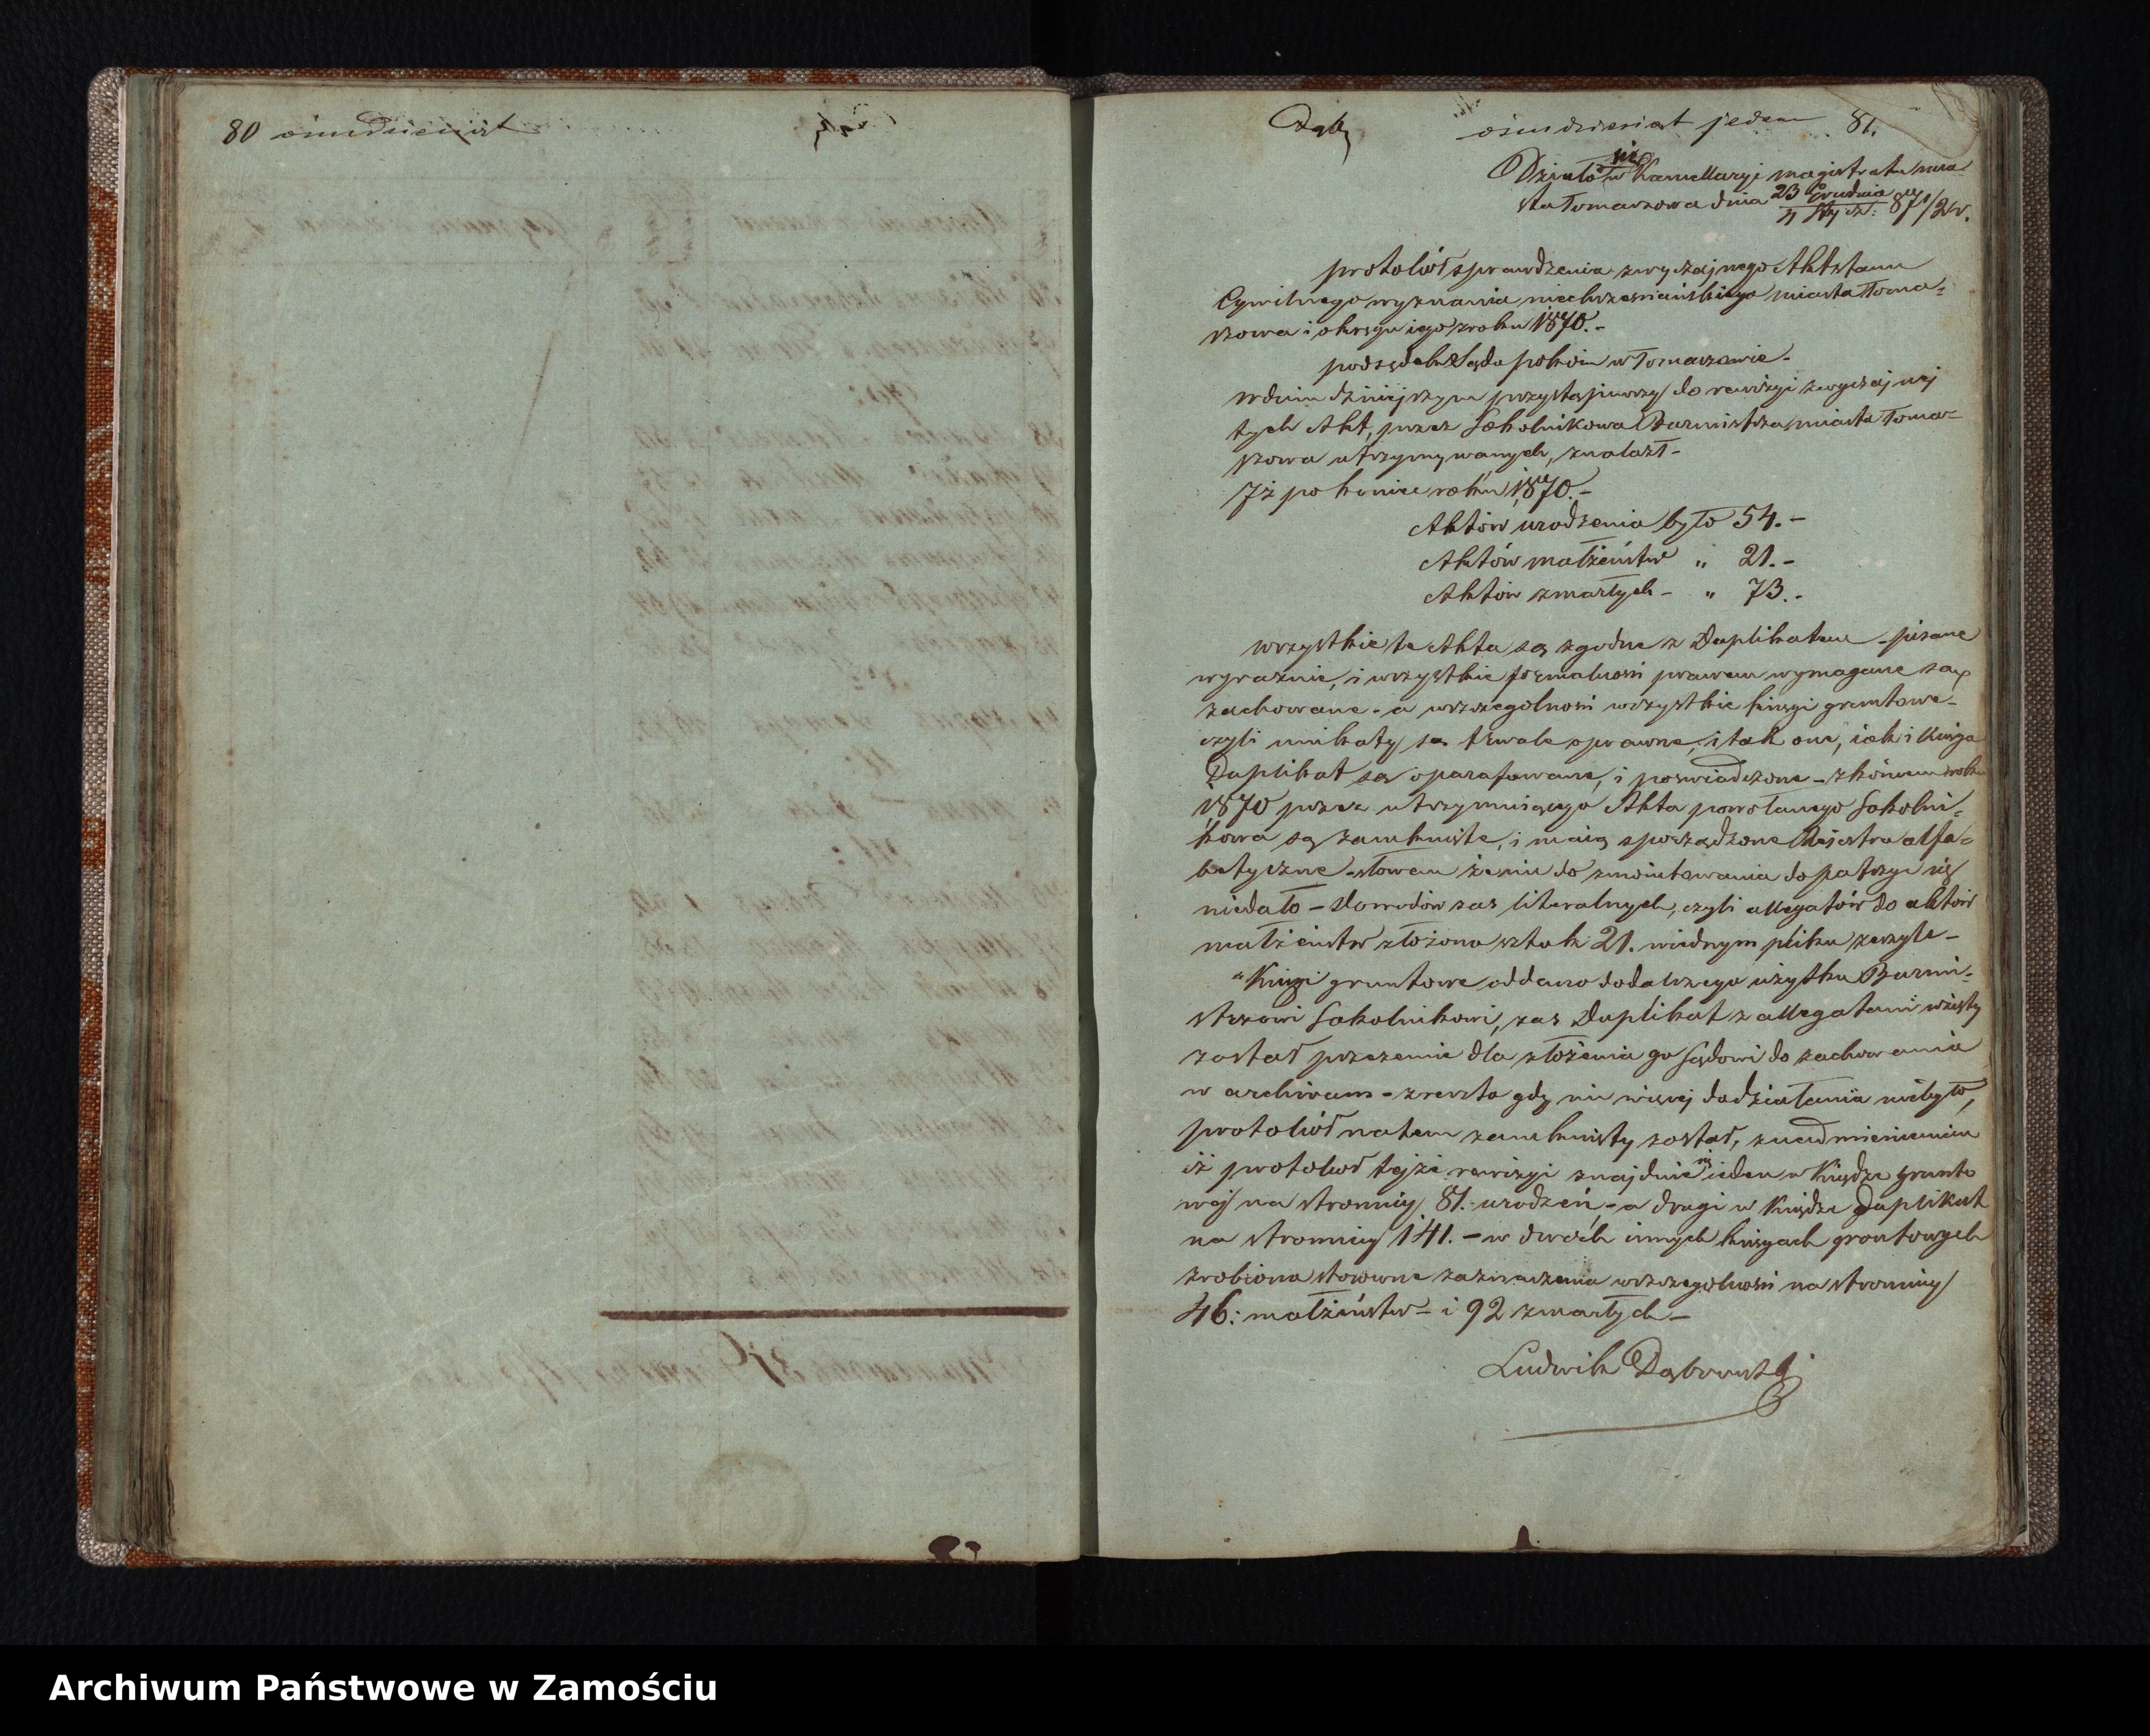 80 ośmdziesiąt
Dąb
ośmdziesiąt jeden 81.
Działo się w Kancellaryi magistratu mia-
sta Tomaszowa dnia 23 Grudnia / 4 Stycz: 187 1/2 r.
protokół sprawdzenia zwyczajnego Akt stanu
Cywilnego wyznania niechrześciańskiego miasta Toma-
szowa i okręgu iego z roku 1870.-
podsędek Sądu pokoiu w Tomaszowie-
w dniu dzisiejszym przystąpiwszy do rewizyi zwyczajnej
tych Akt, przez Sokolnikowa Burmistrza miasta Toma-
szowa utrzymywanych, znalazł-
Iż po koniec roku 1870.-
Aktów urodzenia było 54.-
Aktów małżeństw " 21.-
Aktów zmarłych - " 73.-
wszystkie te Akta są zgodne z Duplikatem - pisane
wyraźnie, i wszystkie formalności prawem wymagane są
zachowane - a w szczególności wszystkie księgi gruntowe-
czyli unikaty są trwale oprawne, i tak one, iak i Księga
Duplikat są oparafowane, i poświadczone - z końcem roku
1870 przez utrzymuiącego Akta powołanego Sokolni-
kowa są zamknięte, i maią sporządzone Rejestra alfa-
betyczne - słowem że nic do zmonitowania dopatrzyć się
niedało - dowodów zaś literalnych, czyli allegatów do aktów
małżeństw złożono sztuk 21. w iednym pliku zeszyte-
Księgi gruntowe oddano do dalszego użytku Burmi-
strzowi Sokolnikowi, zaś Duplikat z allegatami wzięty
został przezemnie dla złożenia go Sądowi do zachowania
w archiwum - zreszta gdy nic więcej do działania niebyło,
protokół na tem zamknięty został, z nadmienieniem
iż protokół tejże rewizyi znajduie się ieden w Księdze grunto
wej na stronnicy 81. urodzeń - a drugi w Księdze Duplikat
na stronnicy 141. - w dwóch innych księgach gruntowych
zrobiono stosowne zaznaczenia w szczególności na stronnicy
46: małżeństw - i 92 zmarłych -
Ludwik Dąbrowski
Archiwum Państwowe w Zamościu